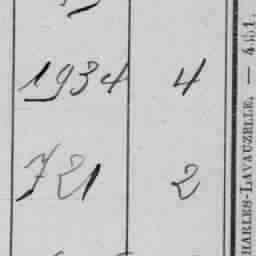 1934 4
721 2
HARLES-LAVAUZELLE. — 4551.